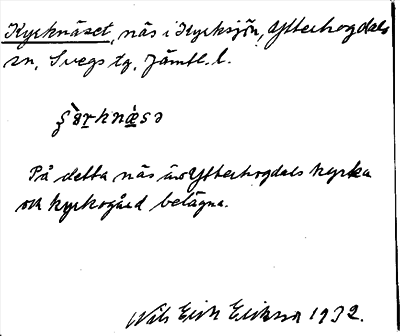 Kyrknäset, näs i Kyrksjön, Ytterhogdals
sn, Svegs tg, Jämtl. l.
På detta näs äro Ytterhogdals kyrka
och kyrkogård belägna.
Nils Erik Erikson 1932.